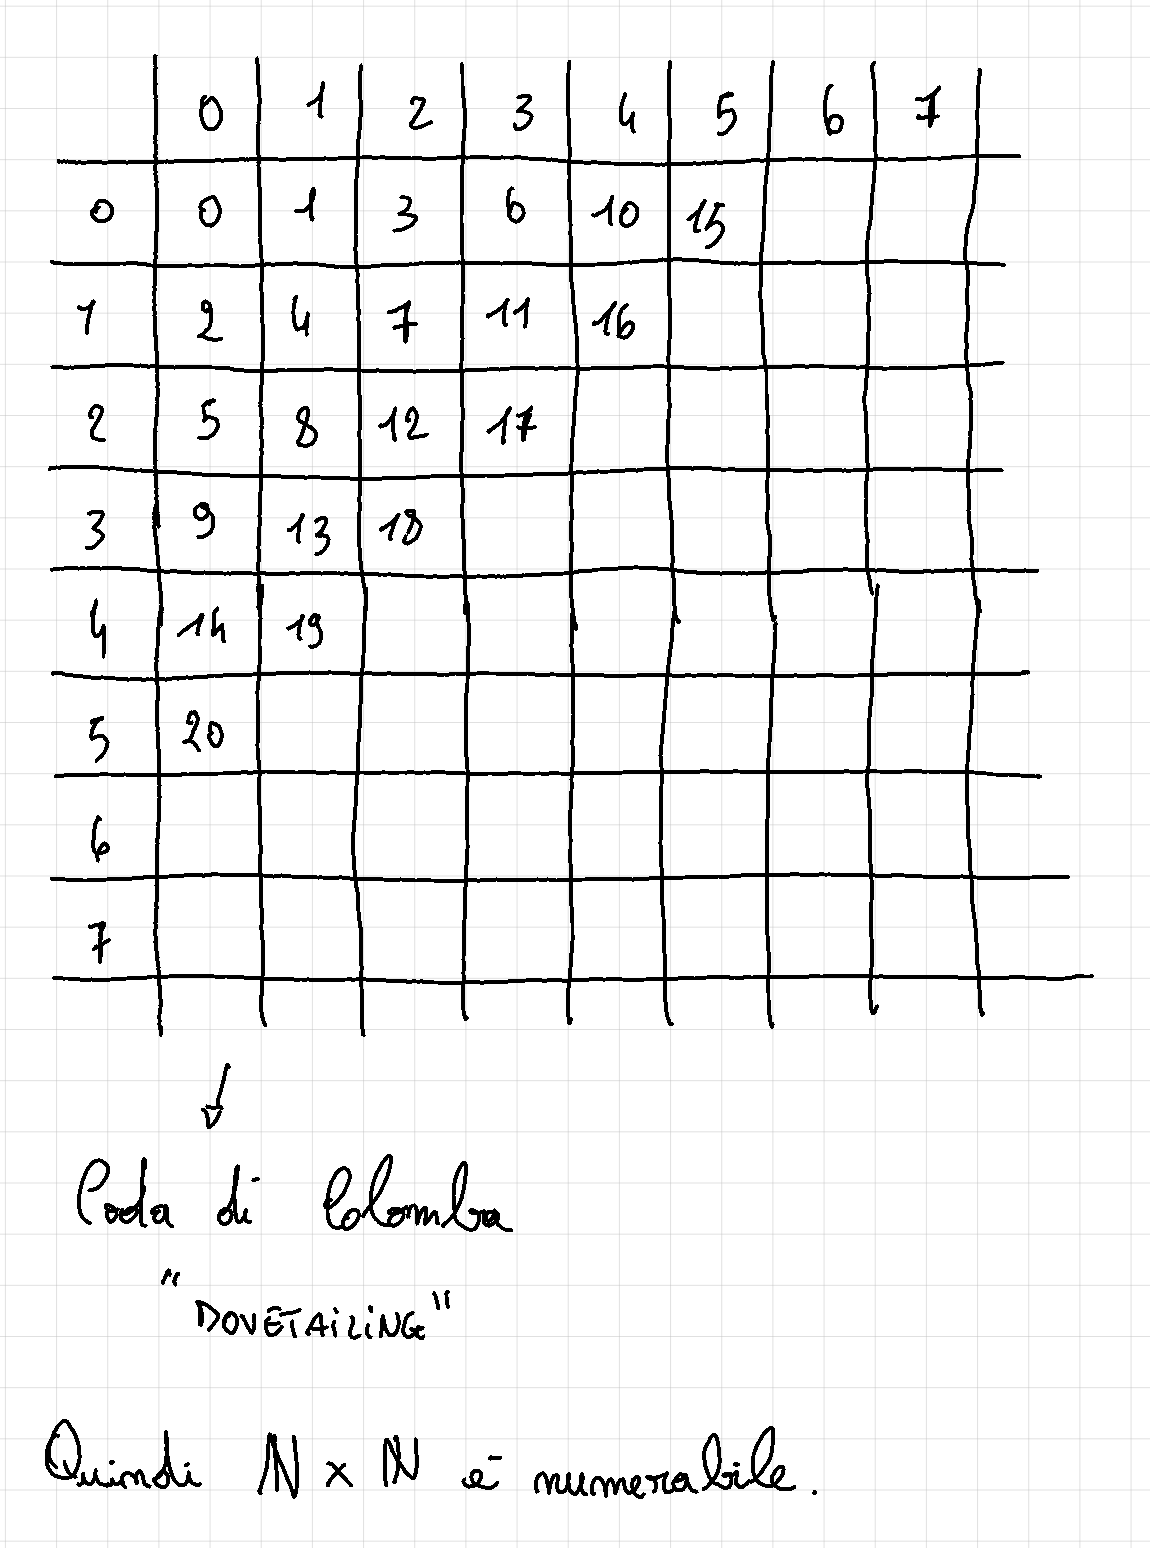 0 1 2 3 4 5 6 7
0 0 1 3 6 10 15
1 2 4 7 11 16
2 5 8 12 17
3 9 13 18
4 14 19
5 20
6
7
Coda di Colomba
"DOVETAILING"
Quindi ℕ × ℕ è numerabile.